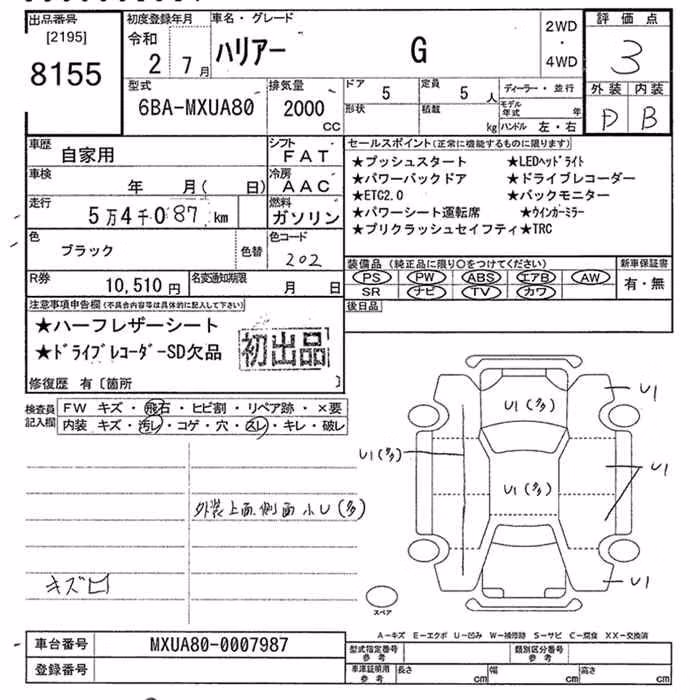 出品番号
[2195]
8155
初度登録年月
令和
2 7月
車名・グレード
ハリアー G
2WD
・
4WD
評価点
3
外装 内装
D B
型式
6BA-MXUA80
排気量
2000
CC
ドア
5
定員
5 人
形状
積載
kg
ディーラー・並行
モデル
年式 年
ハンドル 左・右
車歴
自家用
シフト
FAT
車検
年 月( 日)
冷房
AAC
走行
5万4千087km
燃料
ガソリン
色
ブラック
色替
色コード
202
R券
10,510円
名変通知期限
月 日
セールスポイント(正常に機能するものに限ります)
★プッシュスタート ★LEDヘッドライト
★パワーバックドア ★ドライブレコーダー
★ETC2.0 ★バックモニター
★パワーシート運転席 ★ウインカーミラー
★プリクラッシュセイフティ★TRC
装備品(純正品に限り○をつけてください)
PS PW ABS エアB AW
SR ナビ TV カワ
新車保証書
有・無
後日品
注意事項申告欄(不具合内容等は具体的に記入して下さい)
★ハーフレザーシート
★ドライブレコーダーSD欠品
初出品
修復歴 有〔箇所 〕
検査員
記入欄
FW キズ・飛石・ヒビ割・リペア跡・×要
内装 キズ・汚レ・コゲ・穴・スレ・キレ・破レ
外装上面、側面小U(多)
キズ凹
U1
U1(多)
U1(多)
U1(多)
U1
U1
スペア
A-キズ E-エクボ U-凹み W-補修跡 S-サビ C-腐食 XX-交換済
車台番号
MXUA80-0007987
登録番号
型式指定番号
参考
類別区分番号
参考
車庫証明用
参考
長さ cm 幅 cm 高さ cm